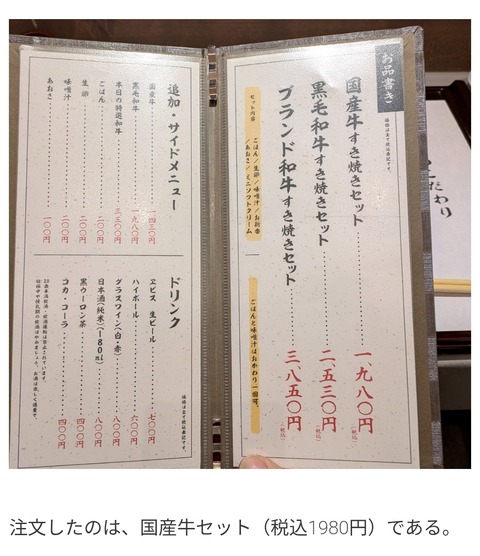 お品書き
価格は全て税込表記です。
国産牛すき焼きセット 一、九八〇円
(税込)
黒毛和牛すき焼きセット 二、五三〇円
(税込)
ブランド和牛すき焼きセット 三、八五〇円
(税込)
セット内容
ごはん/生卵/味噌汁/お新香
/あおさ/ミニソフトクリーム
ごはんと味噌汁はおかわり一回可。
追加・サイドメニュー
国産牛 一、四三〇円
黒毛和牛 一、九八〇円
本日の特選和牛 三、三〇〇円
ごはん 二〇〇円
生卵 二〇〇円
味噌汁 二〇〇円
あおさ 一〇〇円
ドリンク
価格は全て税込表記です。
ヱビス 生ビール 七〇〇円
ハイボール 六〇〇円
グラスワイン(白・赤) 八〇〇円
日本酒(純米)(180㎖) 八〇〇円
黒ウーロン茶 四〇〇円
コカ・コーラ 四〇〇円
だわり
注文したのは、国産牛セット（税込1980円）である。